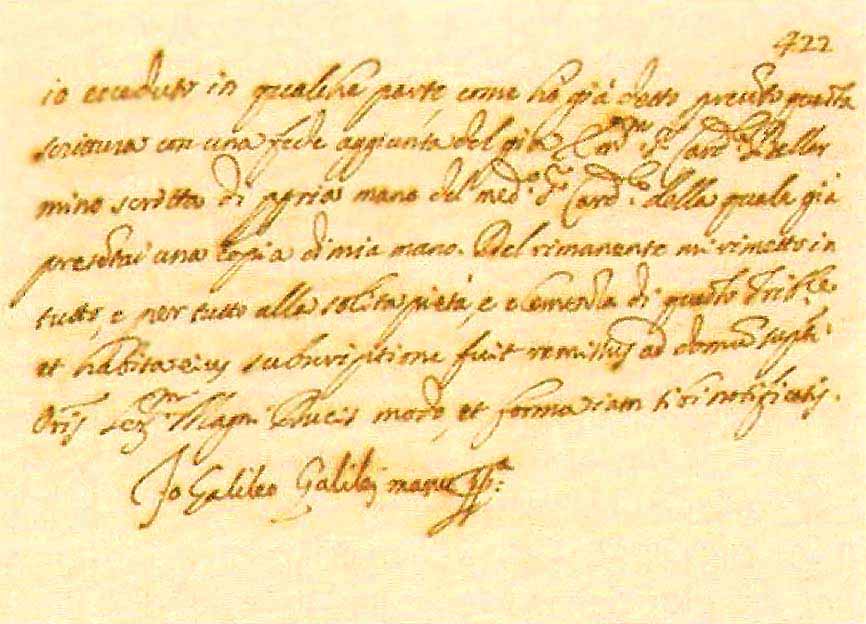 422
io ecceduto in qualche parte, come hò già detto presento questa
scrittura con una fede aggiunta del già Em.mo S.r Card.le Bellar
mino scritta di ppria mano del med.o S.r Card.le, della quale già
presentai una copia di mia mano. Del rimanente mi rimetto in
tutto, e per tutto alla solita pietà, e clemenza di questo Trib.le
et habita eius subscriptione fuit remissus ad domum supti
Oris Ser.mi Magni Ducis modo, et forma iam sibi notificatis.
Io Galileo Galilei manu pp.a